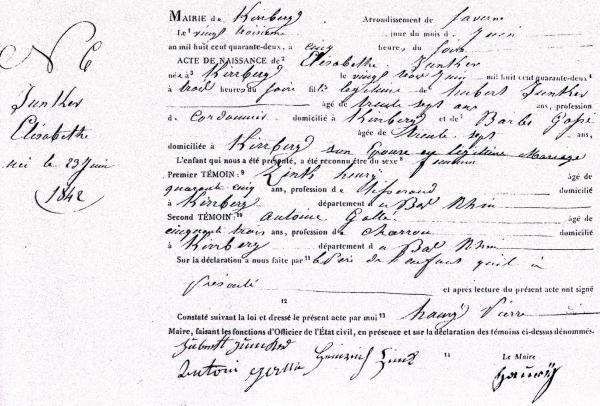 N 6
Junker
Elisabethe
né le 23 Juin
1842
MAIRIE de Kirrberg Arrondissement de Saverne
Le vingt troisieme jour du mois de Juin
an mil huit cent quarante-deux, à cinq heures du soir
ACTE DE NAISSANCE de Elisabethe Junker
née à Kirrberg le vingt trois Juin mil huit cent quarante-deux
à trois heures du soir fille légitime de hubert Junker
âgé de trente sept ans, profession
de Cordonnier domicilié à Kirrberg et de Barbe
âgée de trente sept ans,
domiciliée à Kirrberg son Epouse en légitime Mariage
L'enfant qui nous a été présenté, a été reconnu être du sexe 8 feminin
Premier TÉMOIN: 9 Linth henry âgé de
quarante cinq ans, profession de tisserand domicilié
à Kirrberg département du Bas Rhin
Second TÉMOIN: 10 antoine âgé de
cinquante trois ans, profession de charron domicilié
à Kirrberg département du Bas Rhin
Sur la déclaration à nous faite par 11 le Père de l'enfant quil à
présenté et après lecture du présent acte ont signé
12
Constaté suivant la loi et dressé le présent acte par moi 13 haury Pierre
Maire, faisant les fonctions d'Officier de l'État civil, en présence et sur la déclaration des témoins ci-dessus dénommés.
hubert Juncker
Antoni Heinrich
14 Le Maire
haury